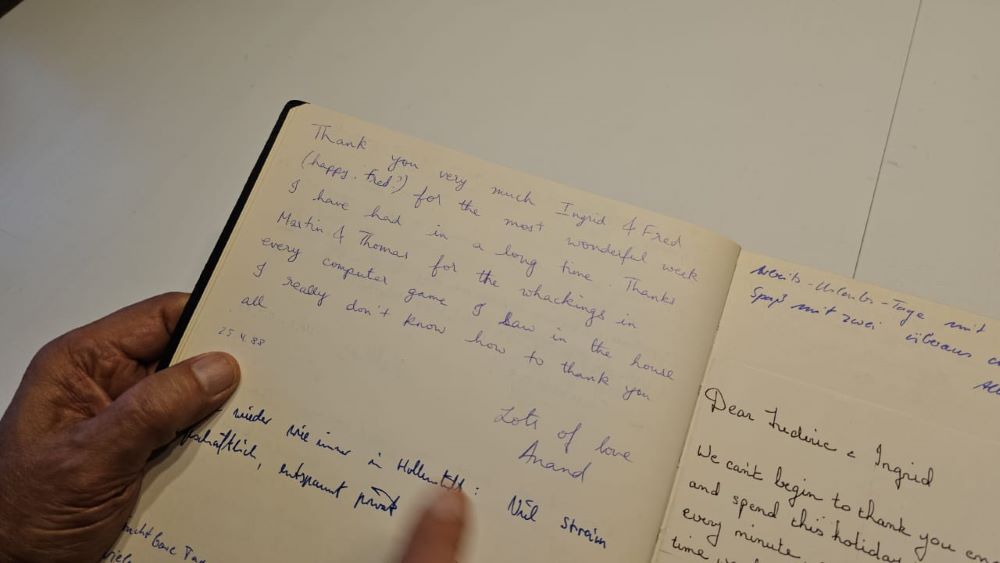 Thank you very much Ingrid & Fred
(happy, Fred?) for the most wonderful week
I have had in a long time. Thanks
Martin & Thomas for the whackings in
every computer game I saw in the house
I really don't know how to thank you
all
Lots of love
Anand
25.4.88
wieder wie immer in
entspannt privat
Tage mit
Spaß mit zwei überaus
Dear Frederic & Ingrid
We can't begin to thank you
and spend this holiday
every minute
time